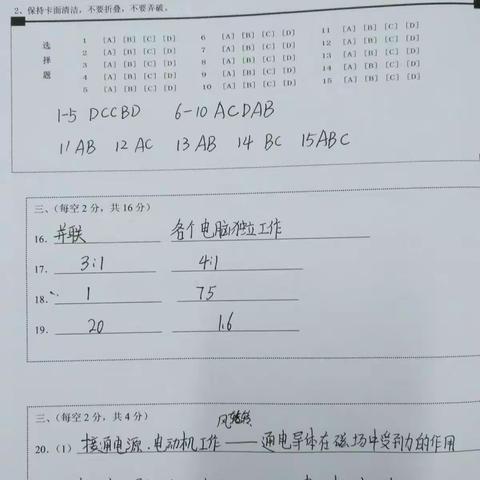 2、保持卡面清洁，不要折叠，不要弄破。
选择题
1 [A] [B] [C] [D] 6 [A] [B] [C] [D] 11 [A] [B] [C] [D]
2 [A] [B] [C] [D] 7 [A] [B] [C] [D] 12 [A] [B] [C] [D]
3 [A] [B] [C] [D] 8 [A] [B] [C] [D] 13 [A] [B] [C] [D]
4 [A] [B] [C] [D] 9 [A] [B] [C] [D] 14 [A] [B] [C] [D]
5 [A] [B] [C] [D] 10 [A] [B] [C] [D] 15 [A] [B] [C] [D]
1-5 DCCBD 6-10 ACDAB
11 AB 12 AC 13 AB 14 BC 15 ABC
三、（每空 2 分，共 16 分）
16. 并联 各个电脑独立工作
17. 3:1 4:1
18. 1 75
19. 20 1.6
三、（每空 2 分，共 4 分）
20.（1）接通电源、电动机工作——通电导体在磁场中受到力的作用